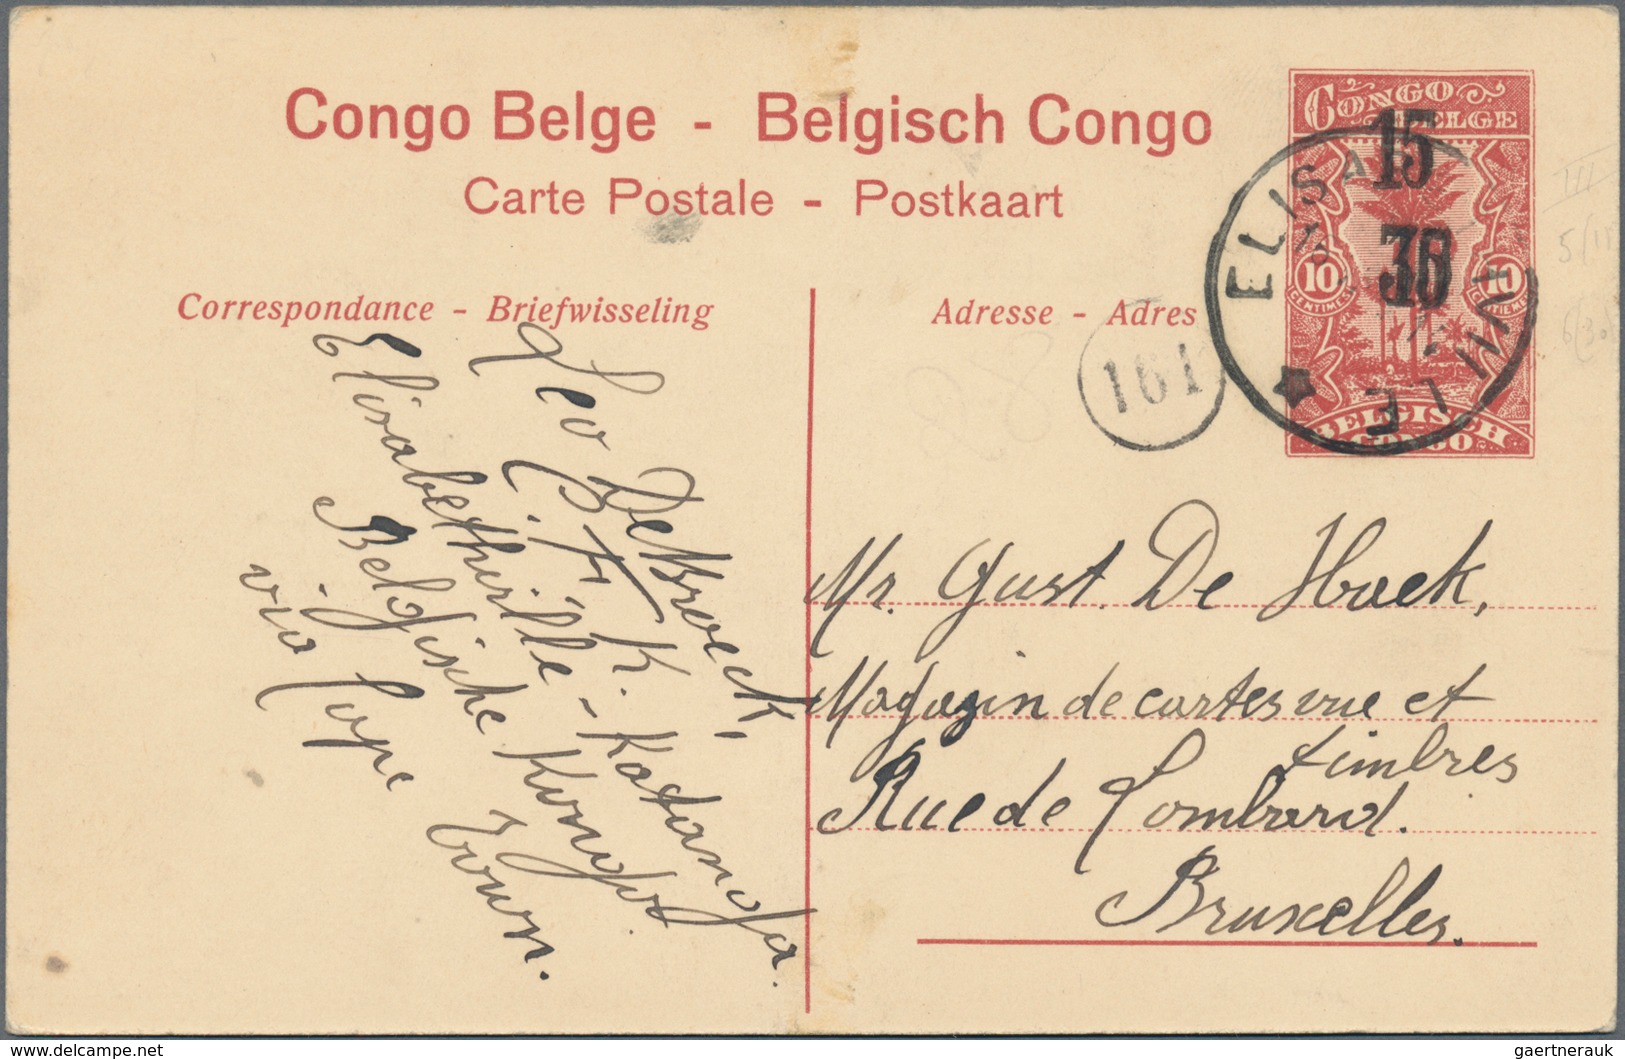 Congo Belge - Belgisch Congo
Carte Postale - Postkaart
CONGO
BELGE
15
30
10
10
CENTIMES
BELGISCH
CONGO
ELISABETHVILLE
161
Correspondance - Briefwisseling
Adresse - Adres
Leo De Broeck,
B.T.K.
Elisabethville - Katanga.
Belgische Kongo.
via Cape Town.
Mr. Gust. De Hoek,
Magazin de cartes vue et
timbres
Rue de Lombard.
Bruxelles.
delcampe.net
gaertnerauk